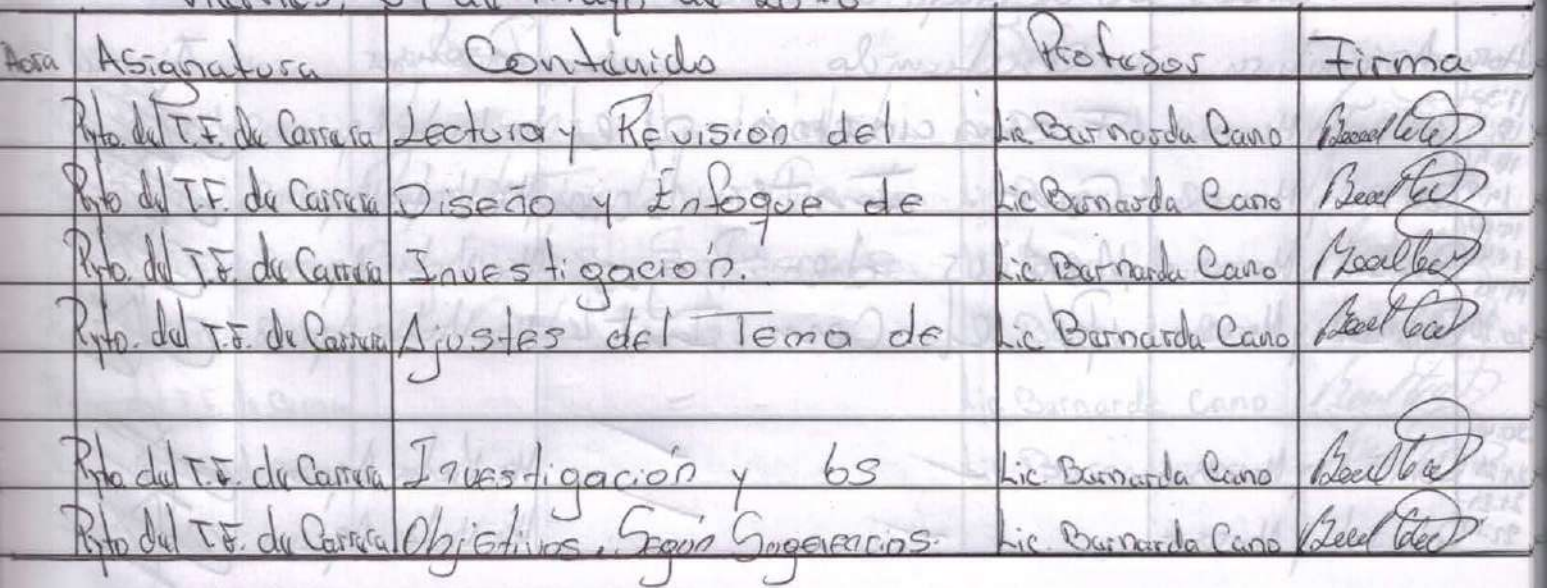 Hora Asignatura Contenido Profesor Firma
Pyto. del T.F. de Carrera Lectura y Revisión del Lic Bernarda Cano
Pyto del T.F. de Carrera Diseño y Enfoque de Lic Bernarda Cano
Pyto. del T.F. de Carrera Investigación. Lic Bernarda Cano
Pyto. del T.F. de Carrera Ajustes del Tema de Lic Bernarda Cano
Pyto del T.F. de Carrera Investigación y los Lic. Bernarda Cano
Pyto del T.F. de Carrera Objetivos, Según Sugerencias. Lic. Bernarda Cano